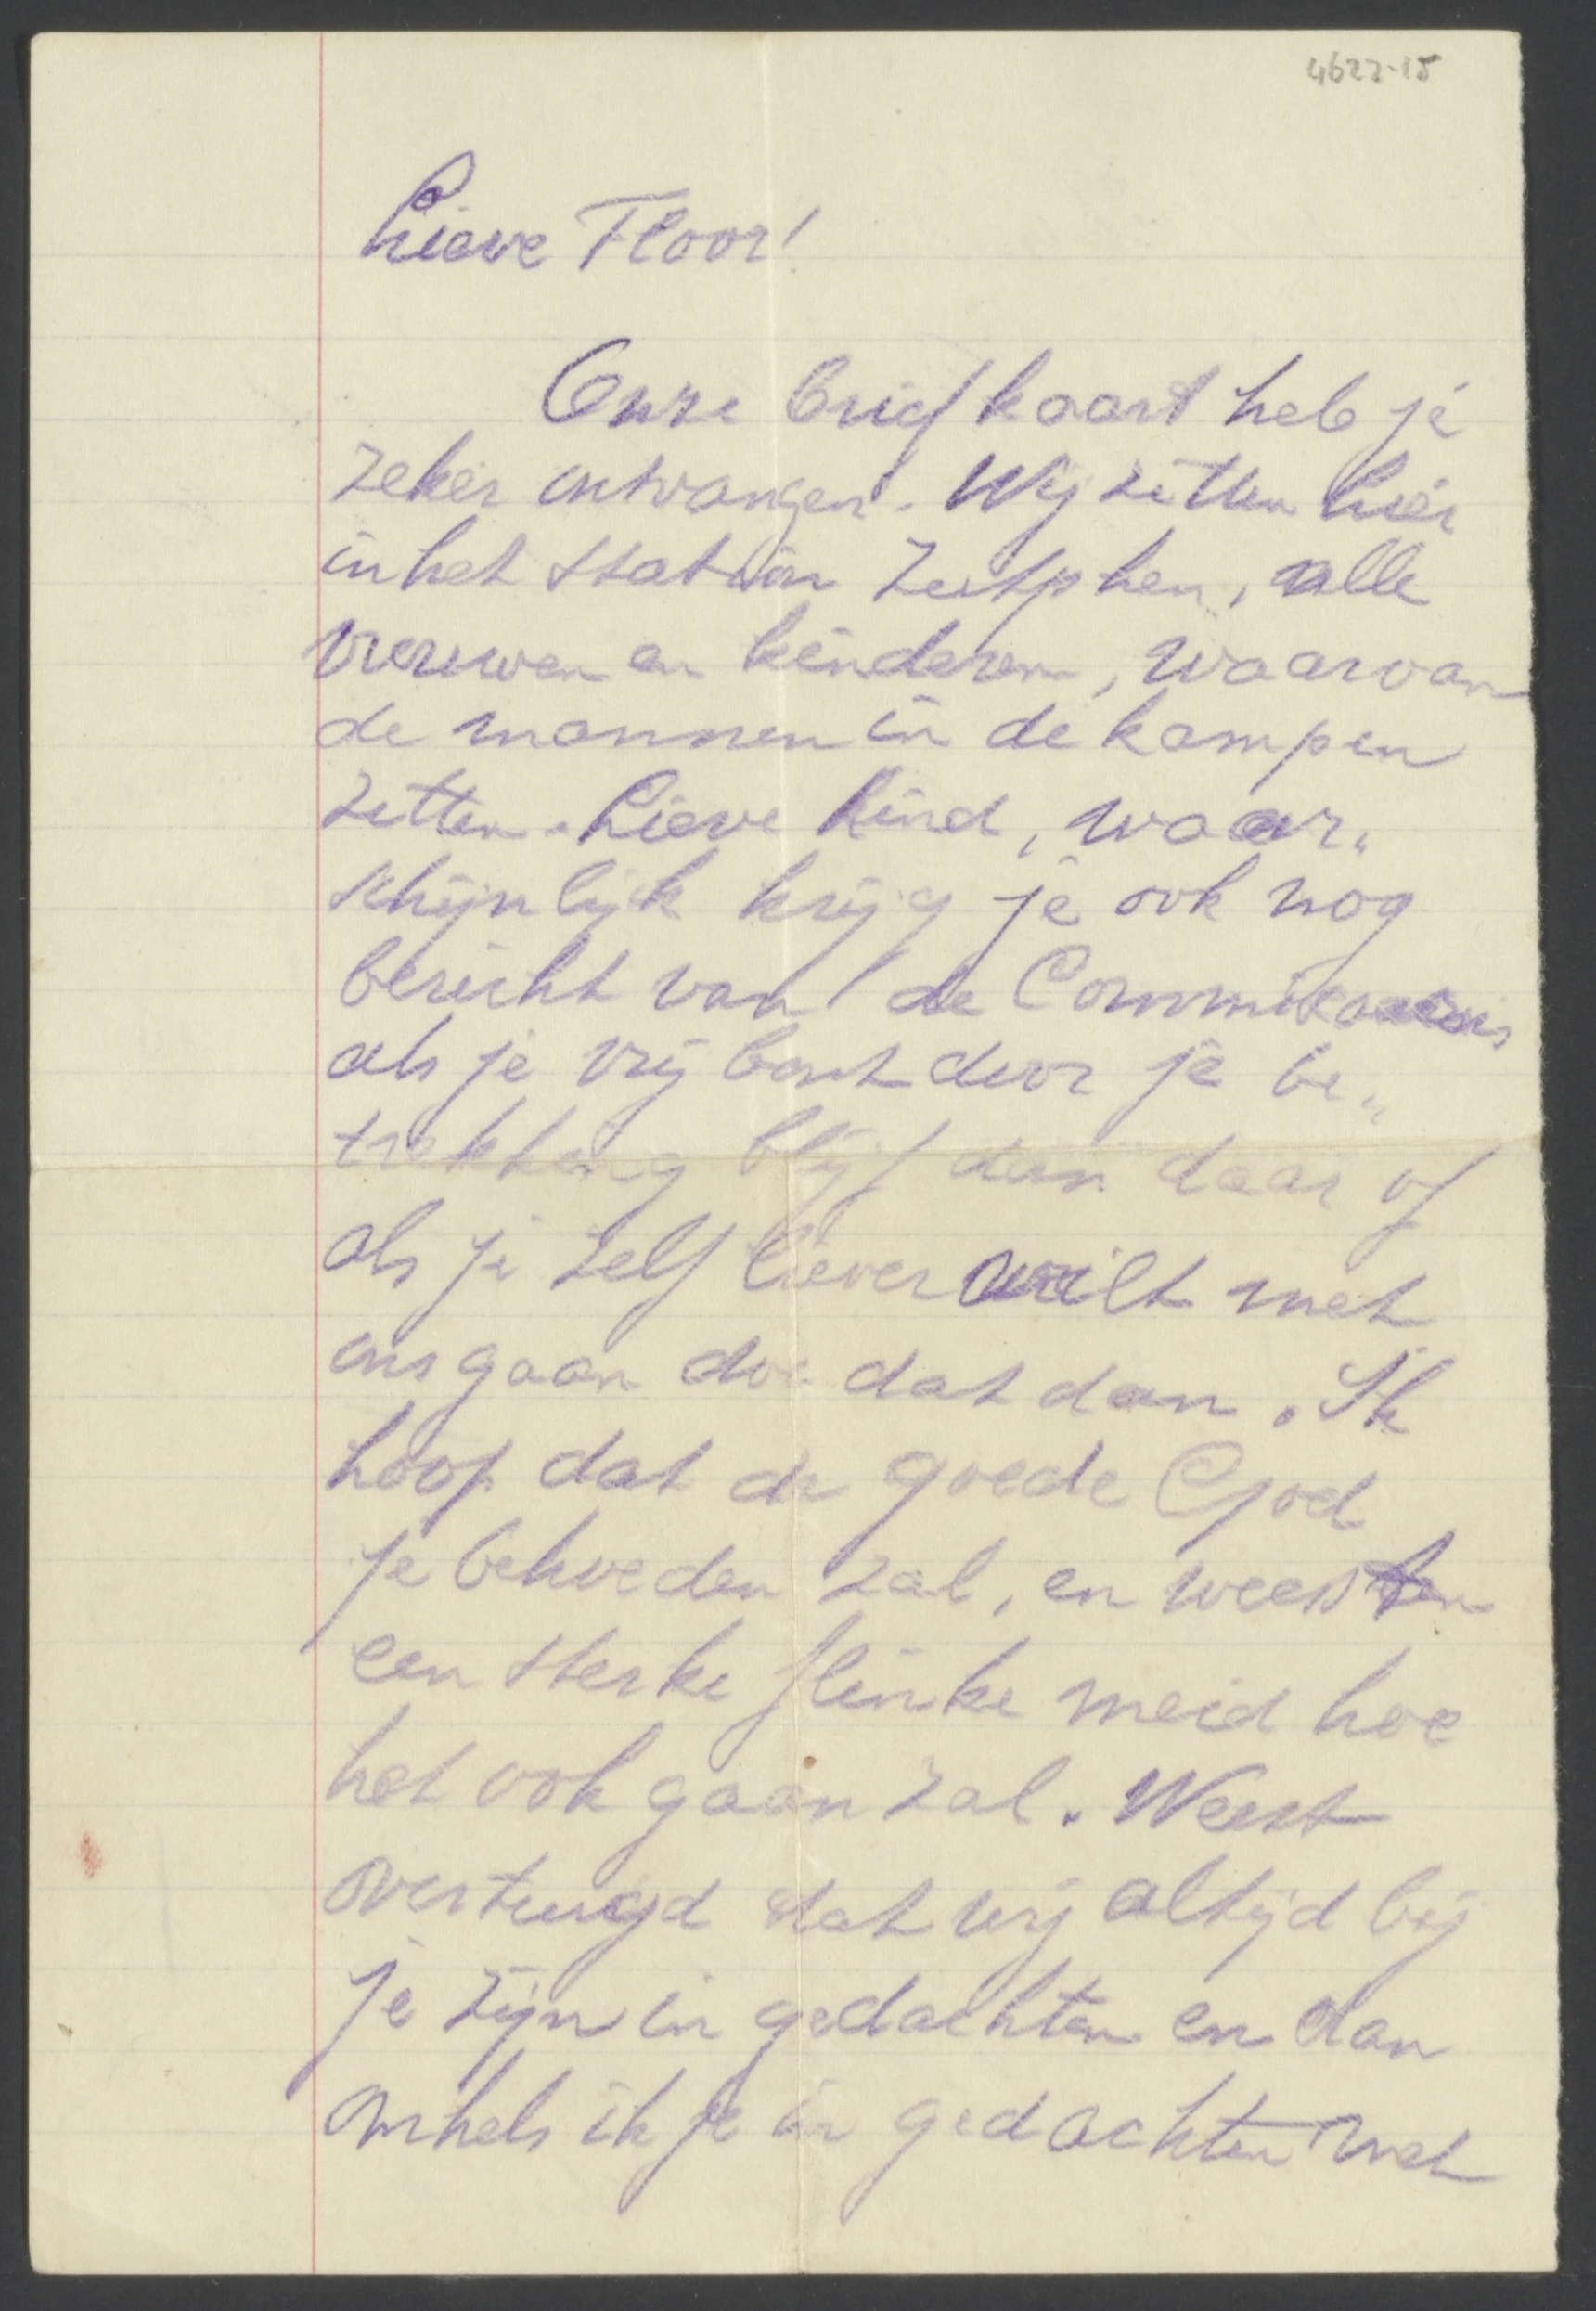 4622-15
Lieve Floor!
Onze briefkaart heb je
zeker ontvangen. Wij zitten hier
in het station Zutphen, alle
vrouwen en kinderen, waarvan
de mannen in de kampen
zitten. Lieve kind, waar„
schijnlijk krijg je ook nog
bericht van de Commissaris
als je vrij bent door je be„
trekking blijf dan daar of
als je zelf liever wilt met
ons gaan doe dat dan. Ik
hoop dat de goede God
je behoeden zal, en wees
een sterke flinke meid hoe
het ook gaan zal. Weest
overtuigd dat wij altijd bij
je zijn in gedachten en dan
omhels ik je in gedachten met